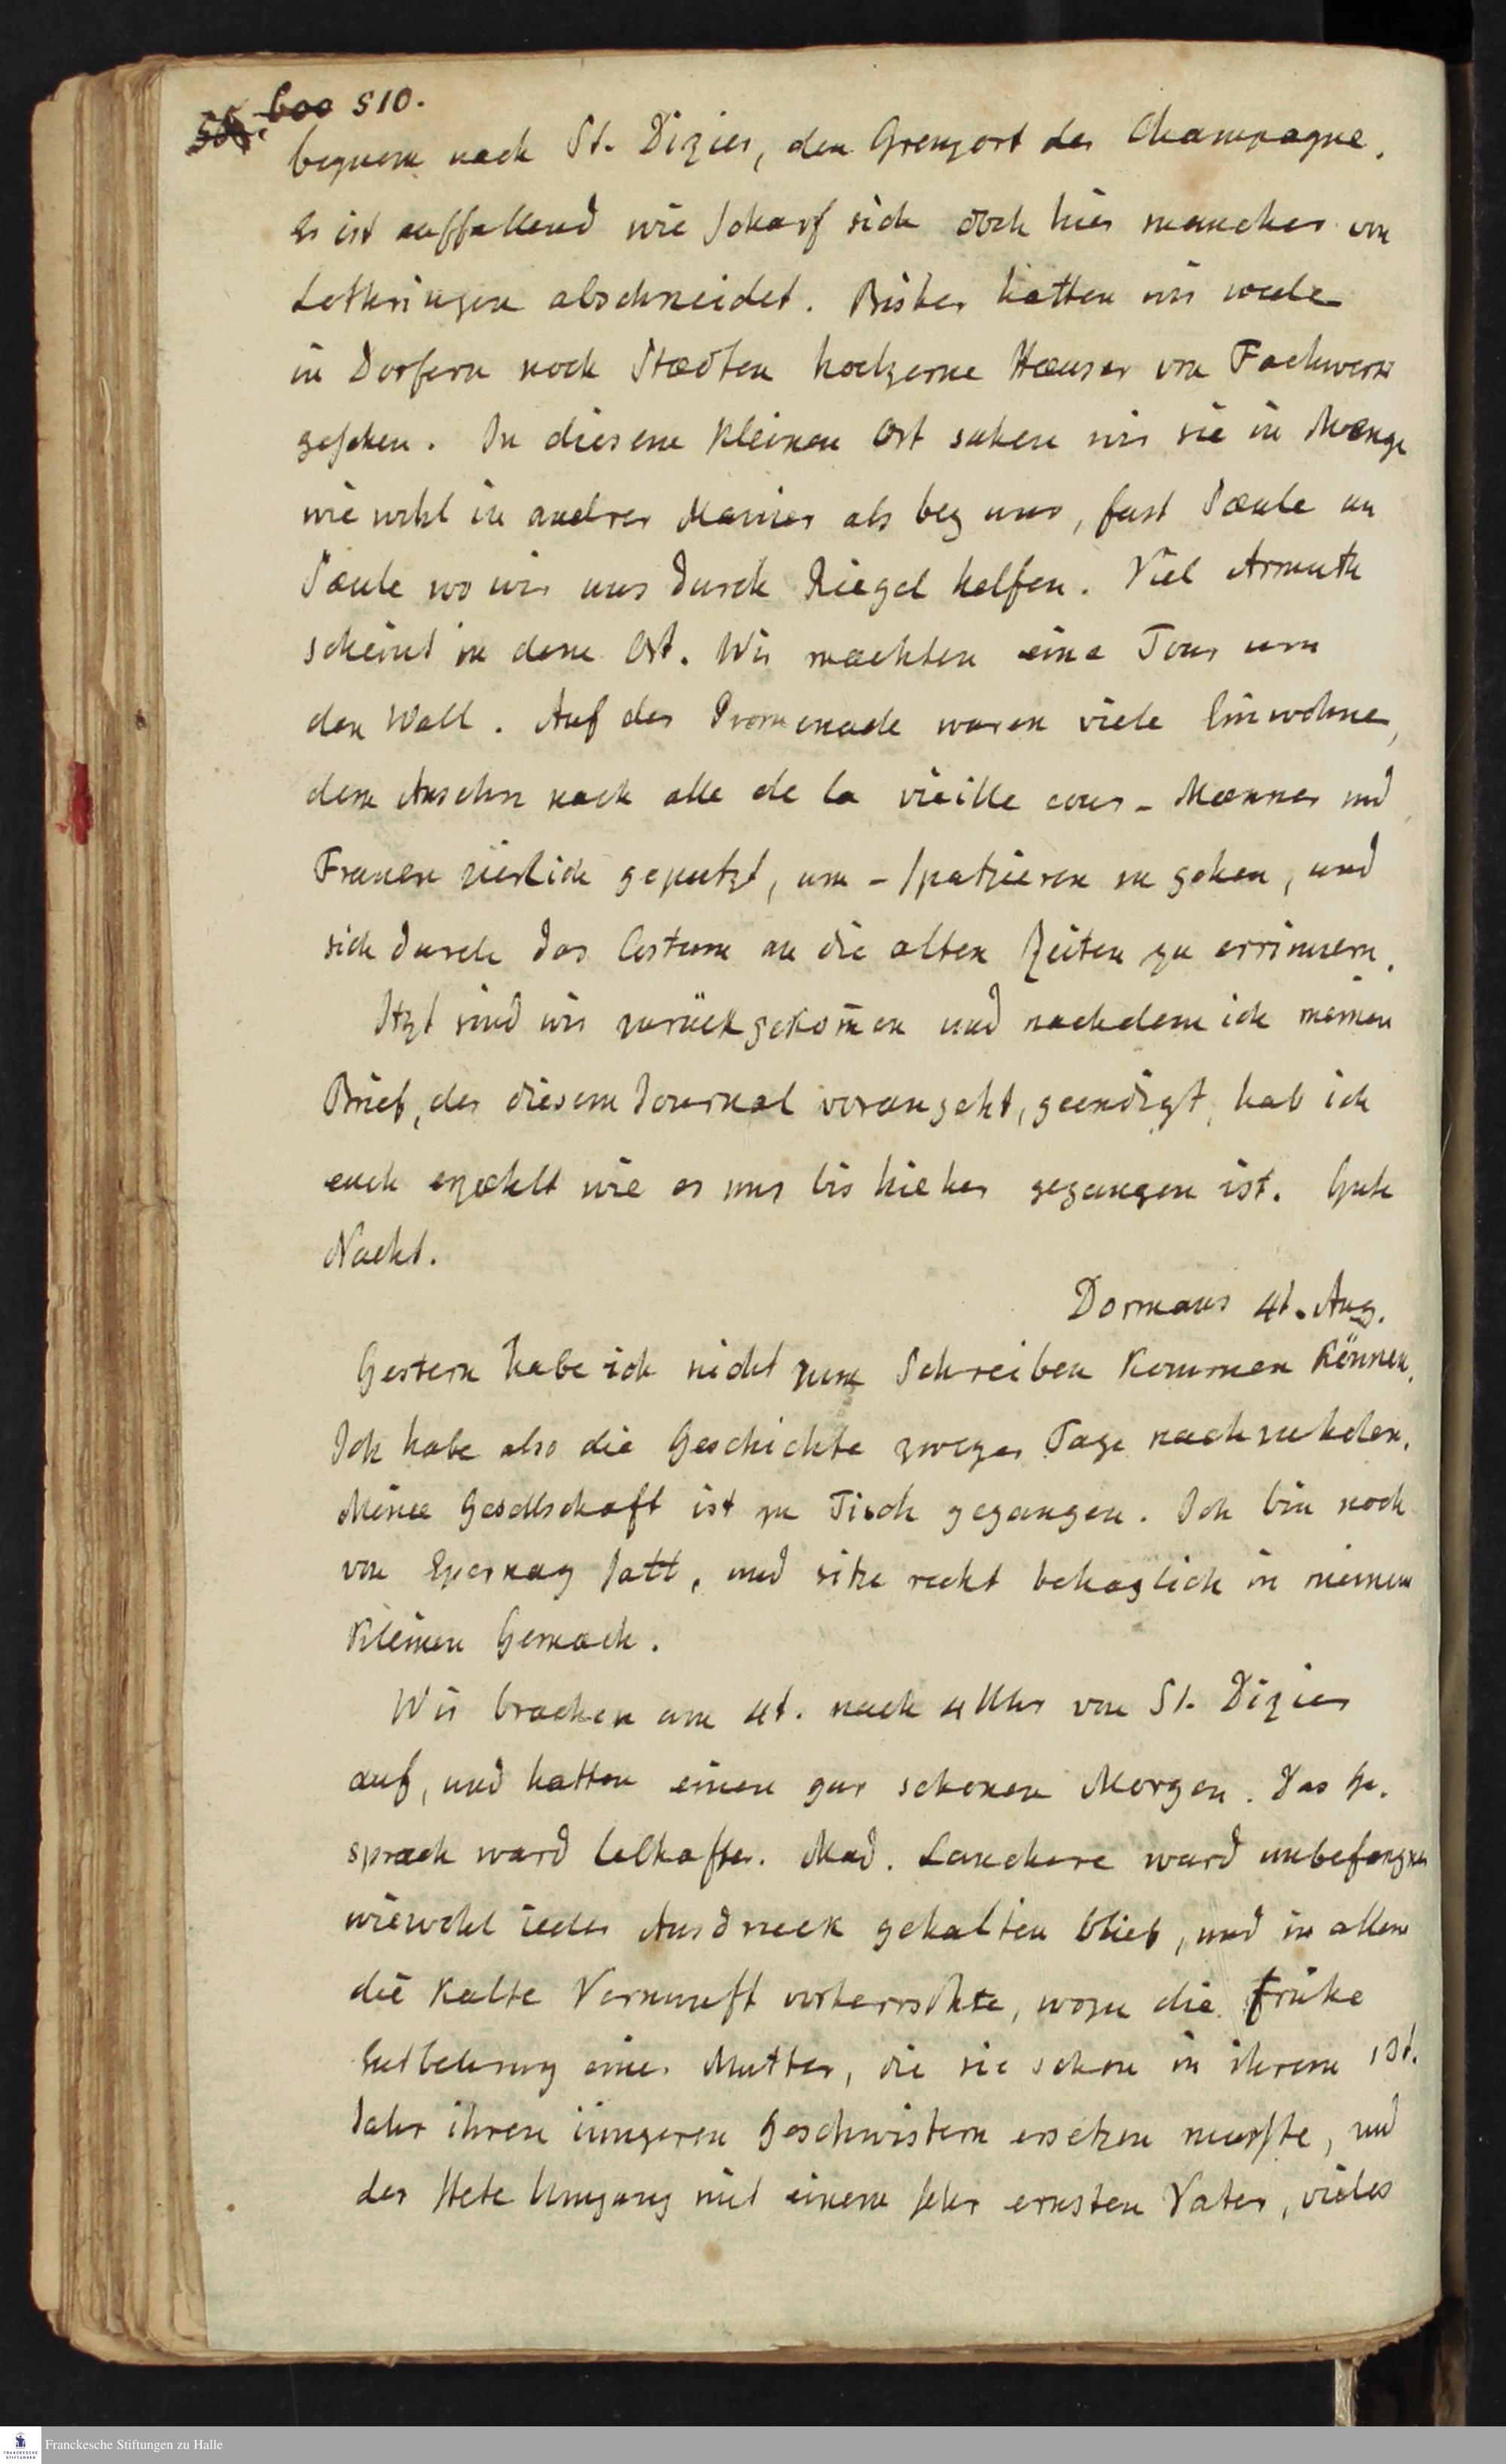 600 510.
bequem nach St. Dizier, den Grenzort der Champagne.
Es ist auffallend wie scharf sich doch hier manches von
Lothringen abschneidet. Bisher hatten wir weder
in Dorfern noch Stædten hoelzerne Hæuser von Fachwerk
gesehen. In diesem kleinen Ort sahen wir sie in Mænge
wie wohl in andrer Manier als bey uns, fast Sæule an
Sæule wo wir uns durch Riegel helfen. Viel Armuth
scheint in dem Ort. Wir machten eine Tour um
den Wall. Auf der Promenade waren viele Einwohner,
dem Ansehn nach alle de la vieille cour – Mænner und
Frauen zierlich geputzt, um – spatzieren zu gehen, und
sich durch das Costum an die alten Zeiten zu errinnern.
Itzt sind wir zurückgekom̄en und nachdem ich meinen
Brief, der diesem Journal vorangeht, geendigt, hab ich
euch erzæhlt wie es uns bis hieher gegangen ist. Gute
Nacht.
Dormans 4t. Aug.
Gestern habe ich nicht zum Schreiben kommen können.
Ich habe also die Geschichte zweyer Tage nachzuholen.
Meine Gesellschaft ist zu Tisch gegangen. Ich bin noch
von Epernay satt, und sitze recht behaglich in meinem
kleinen Gemach.
Wir brachen am 4t. nach 4 Uhr von St. Dizier
auf, und hatten einen gar schonen Morgen. Das Ge-
sprach ward lebhafter. Mad. Lanchere ward unbefangner
wiewohl ieder Ausdruck gehalten blieb, und in allem
die kalte Vernunft vorherrschte, wozu die frühe
Entbehrung einer Mutter, die sie schon in ihrem 13t.
Jahr ihren iüngeren Geschwistern ersetzen mußte, und
der stete Umgang mit einem sehr ernsten Vater, vieles
Franckesche Stiftungen zu Halle